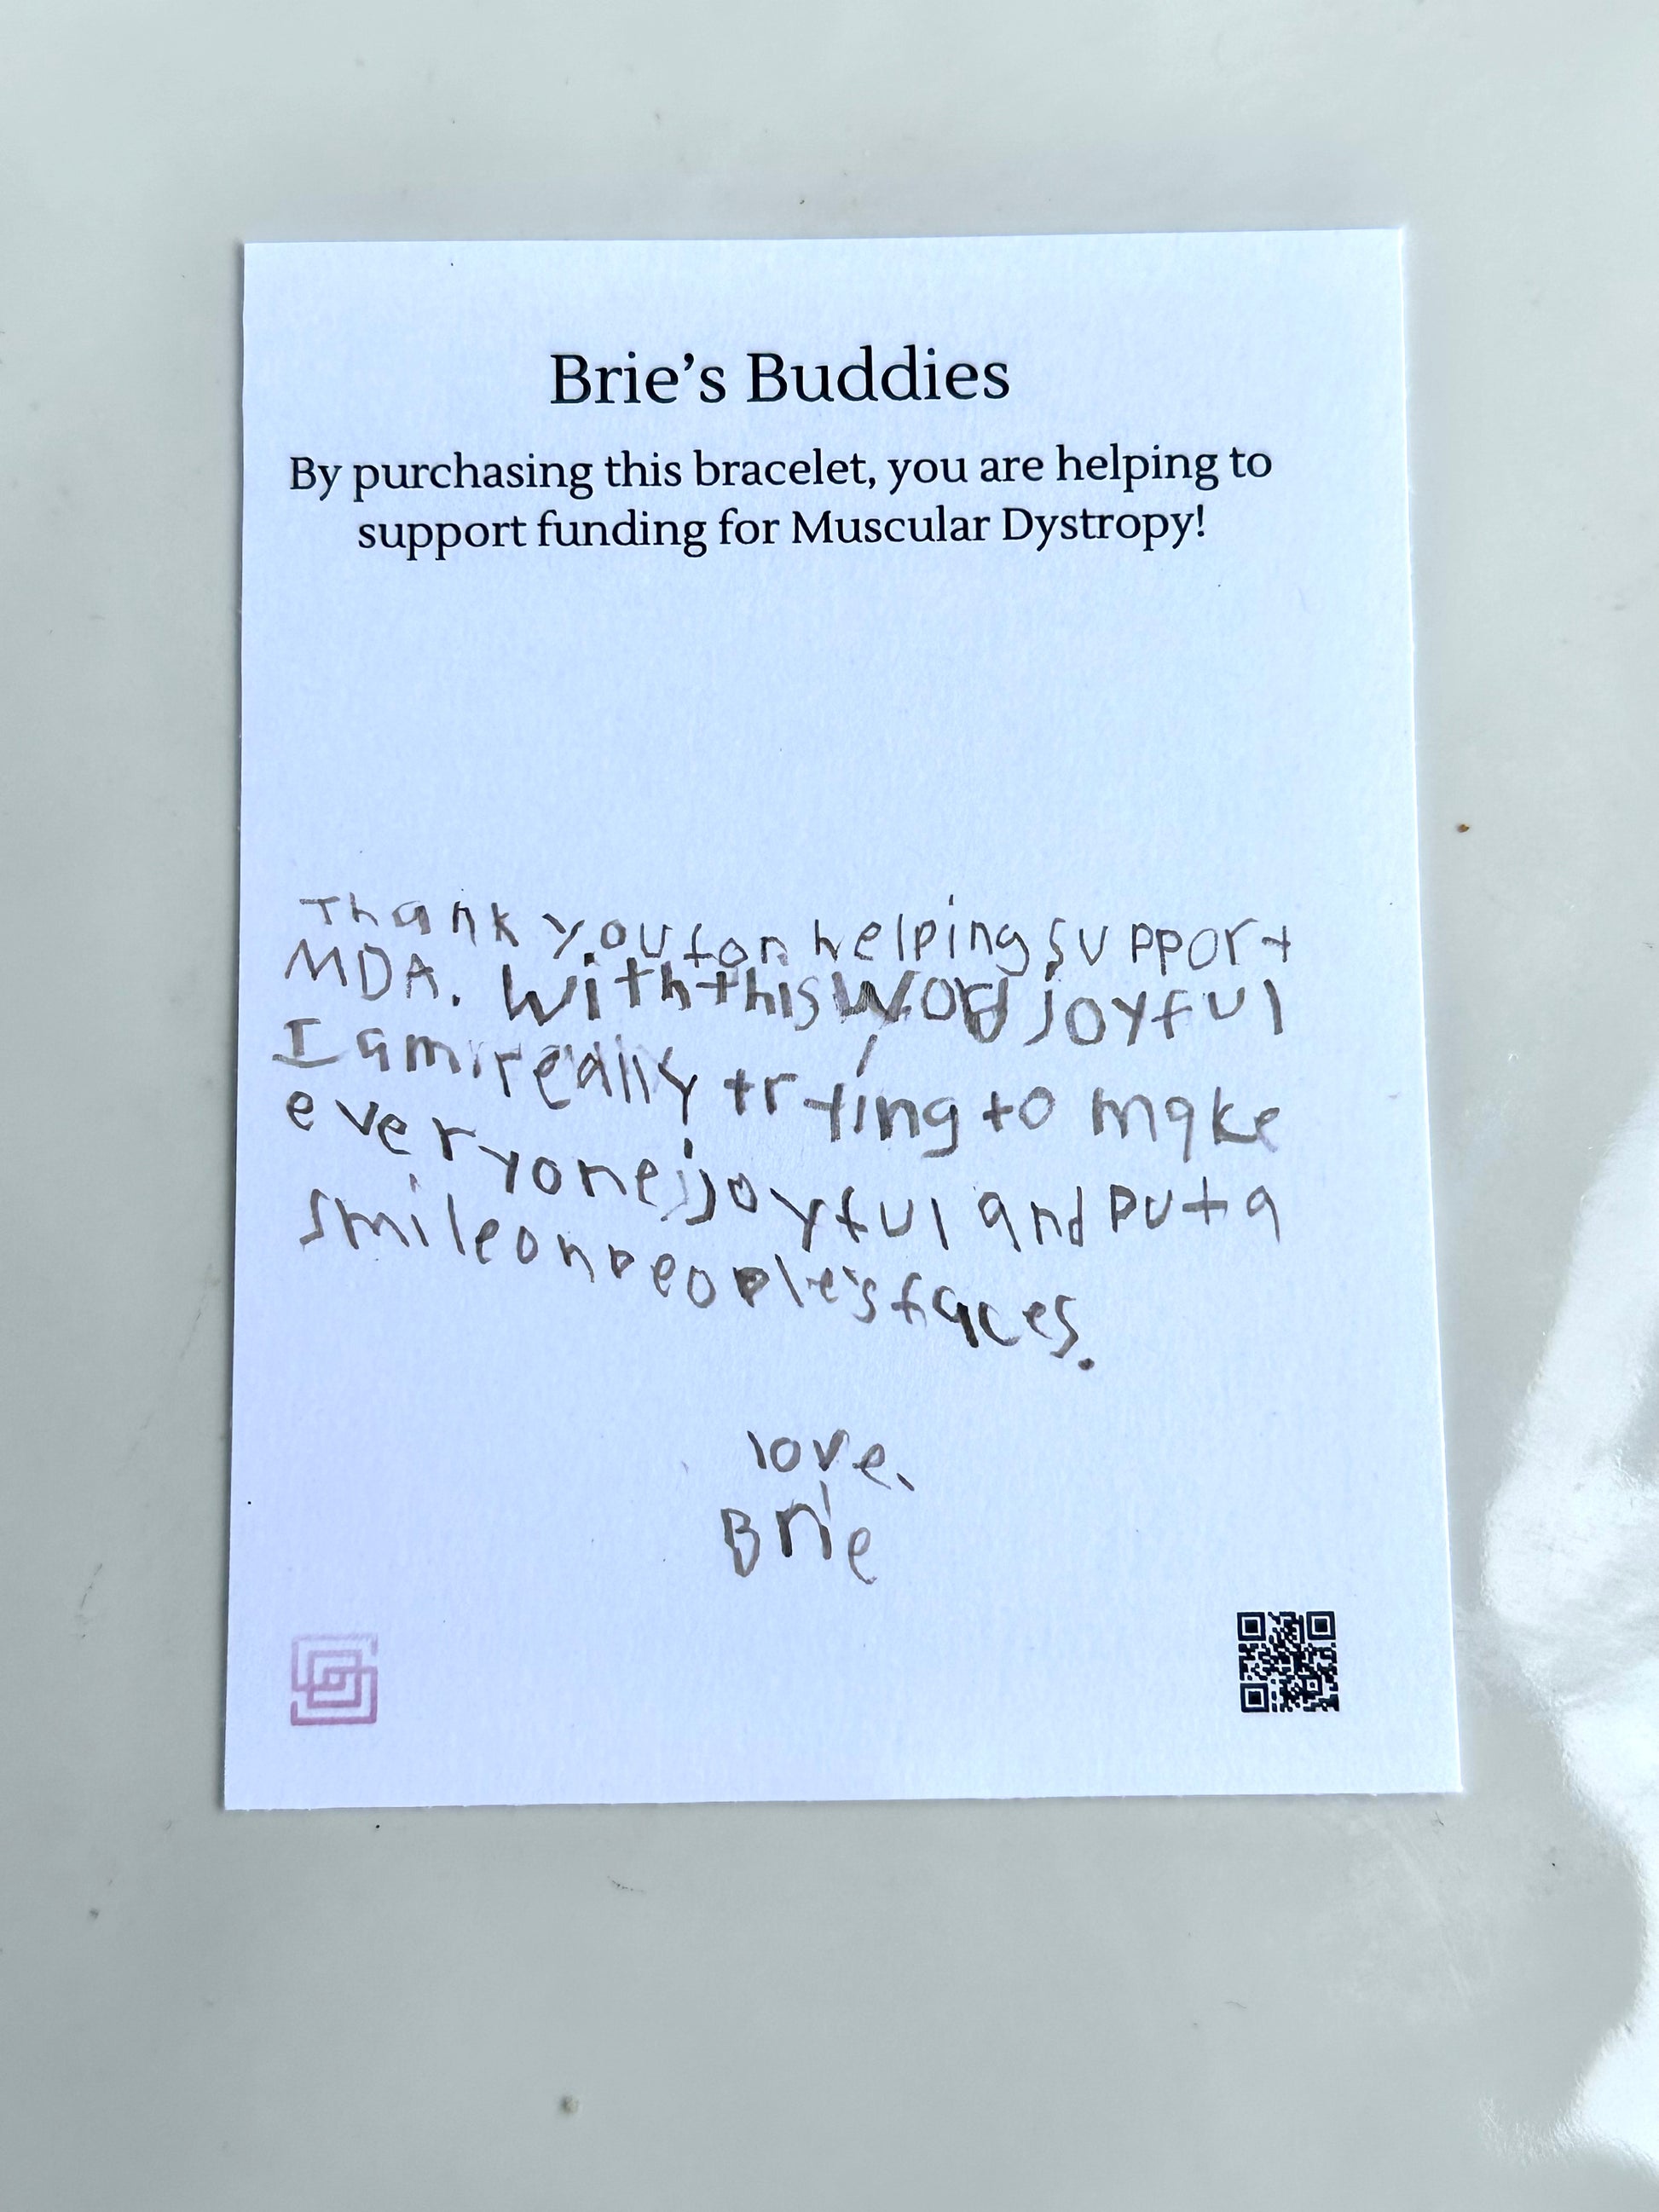 Brie's Buddies
By purchasing this bracelet, you are helping to
support funding for Muscular Dystropy!
Thank you for helping support
MDA. With this word joyful
I am really trying to make
everyone joyful and put a
smile on people's faces.
love,
Brie